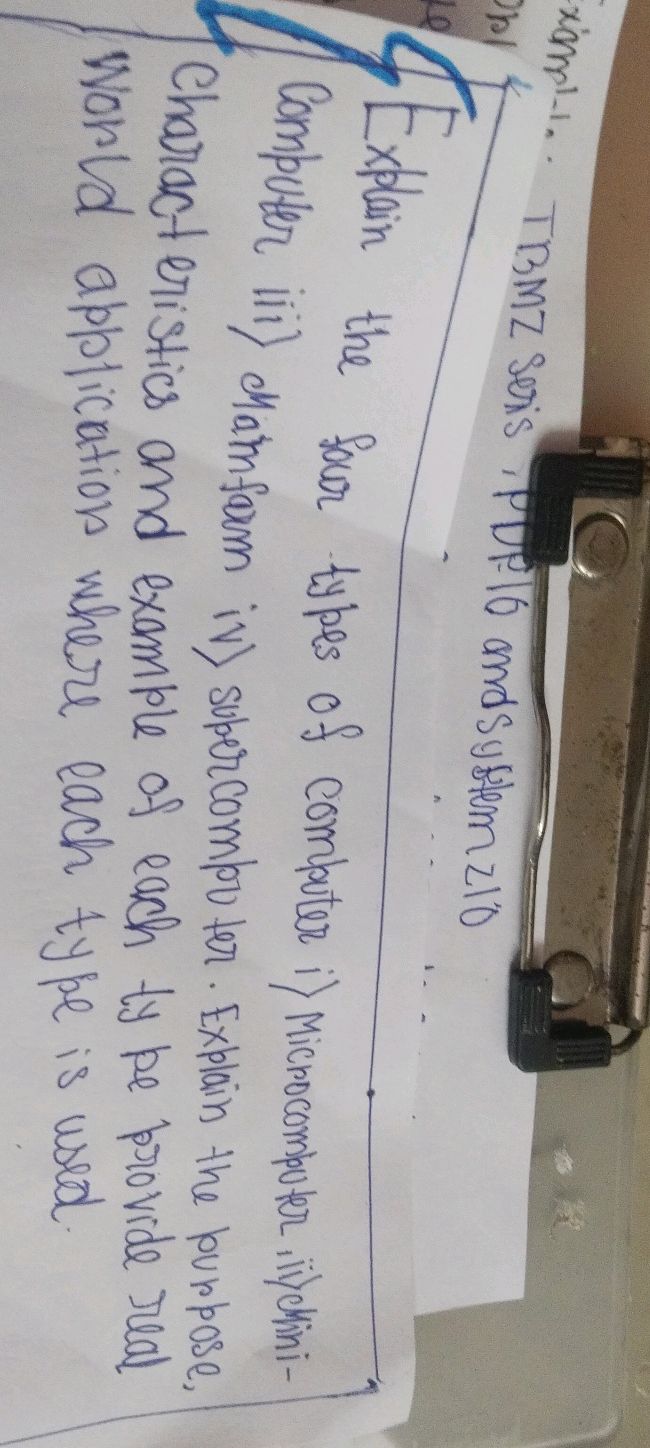 TBMZ Seris, PDP16 and System Z10
Explain the four types of computer i) Microcomputer, ii) Mini-
Computer iii) Mainfarm iv) supercomputer. Explain the purpose,
Characteristics and example of each type provide real
World application where each type is used.